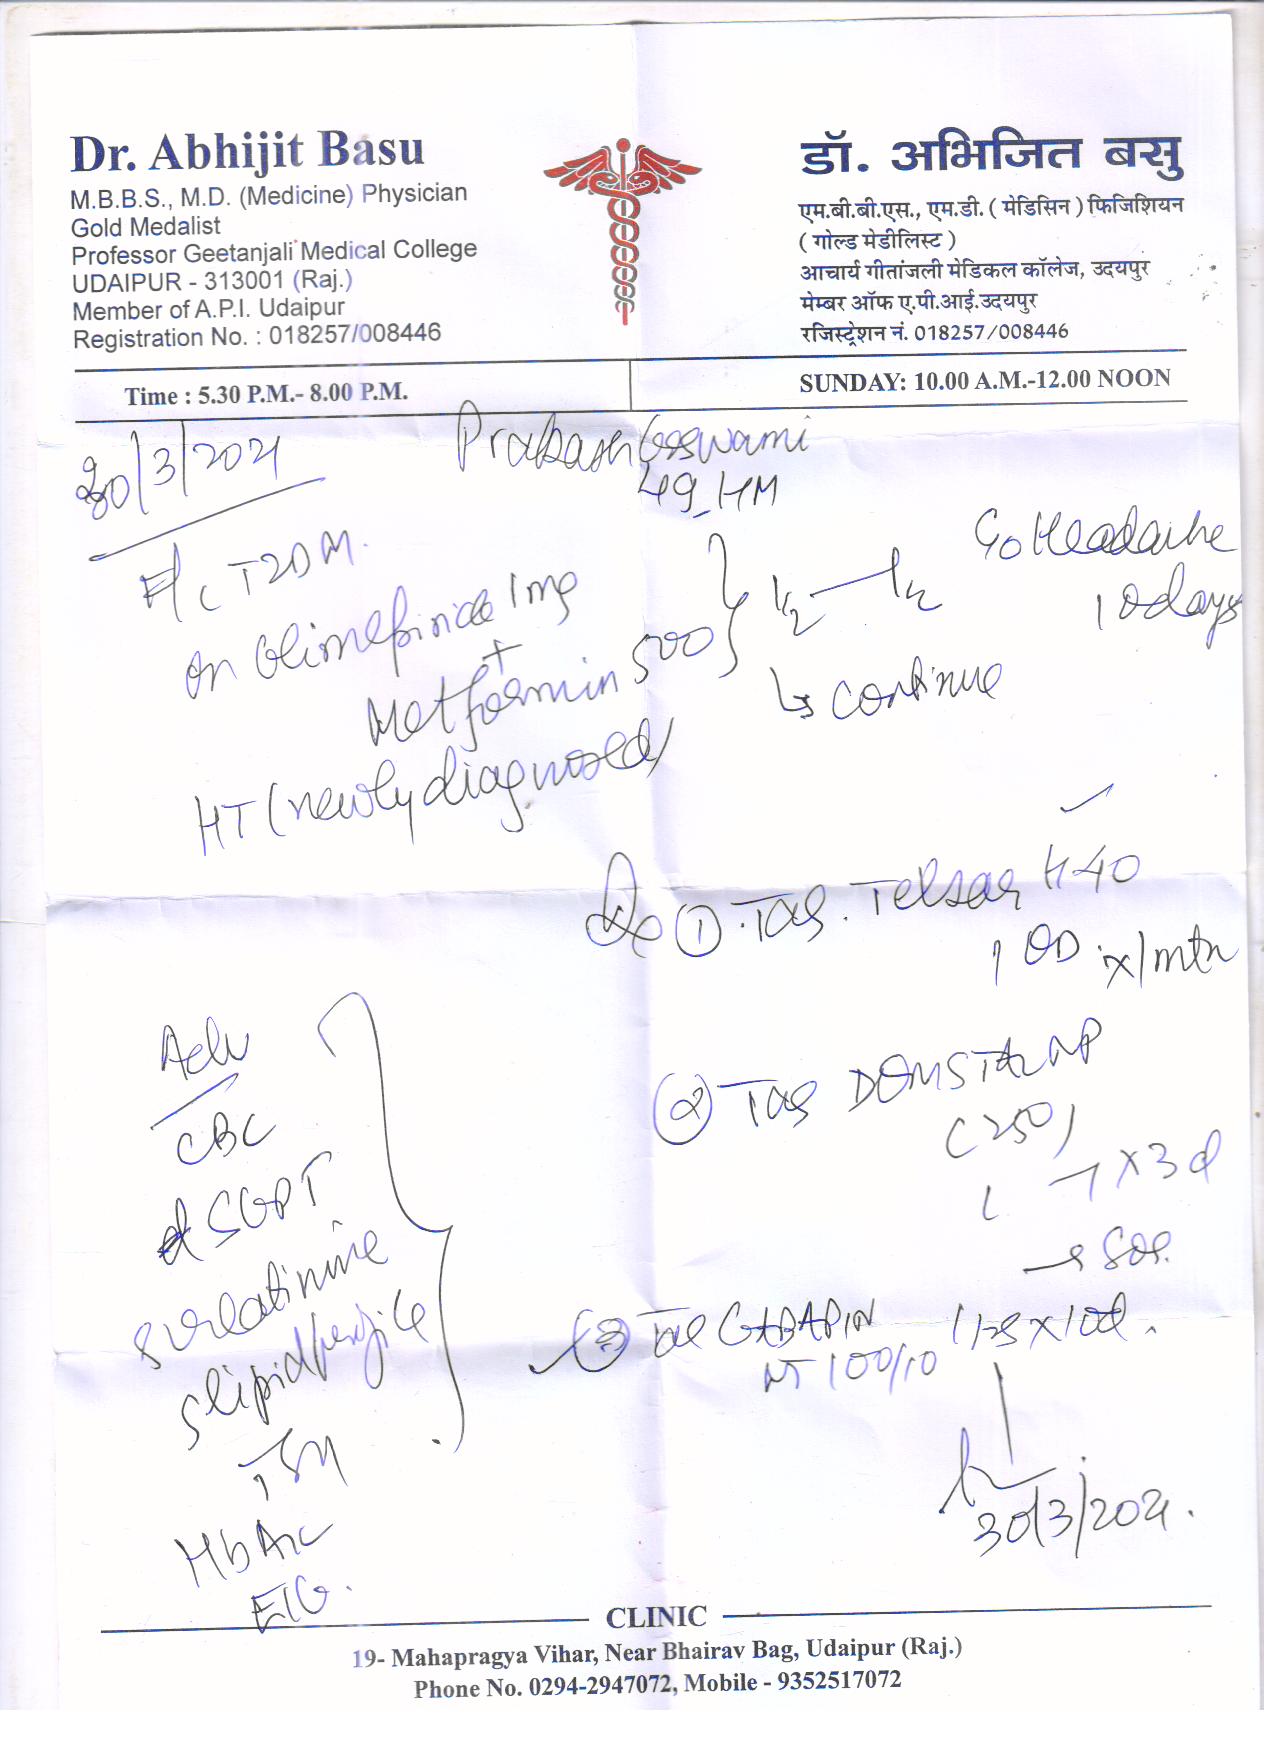 Dr. Abhijit Basu
M.B.B.S., M.D. (Medicine) Physician
Gold Medalist
Professor Geetanjali Medical College
UDAIPUR - 313001 (Raj.)
Member of A.P.I. Udaipur
Registration No. : 018257/008446
डॉ. अभिजित बसु
एम.बी.बी.एस., एम.डी. ( मेडिसिन ) फिजिशियन
( गोल्ड मेडीलिस्ट )
आचार्य गीतांजली मेडिकल कॉलेज, उदयपुर
मेम्बर ऑफ ए.पी.आई.उदयपुर
रजिस्ट्रेशन नं. 018257/008446
Time : 5.30 P.M.- 8.00 P.M.
SUNDAY: 10.00 A.M.-12.00 NOON
30/3/2021
Prakash Goswami
49
T2DM.
on Glimepiride 1mg
+
Metformin 500
1/2 — 1/2
↳ continue
C/o Headache
10days
HT (newly diagnosed)
Rx ① Tab. Telsar H 40
1 OD x 1 mtn
② Tab DOMSTAL NP
(250)
x 3d
→ Sos.
③ Tab GABAPIN
NT 100/10
1 HS x 10d.
30/3/2021.
Adv
CBC
SGPT
S creatinine
S lipid profile
TSH
HbA1c
ECG.
CLINIC
19- Mahapragya Vihar, Near Bhairav Bag, Udaipur (Raj.)
Phone No. 0294-2947072, Mobile - 9352517072